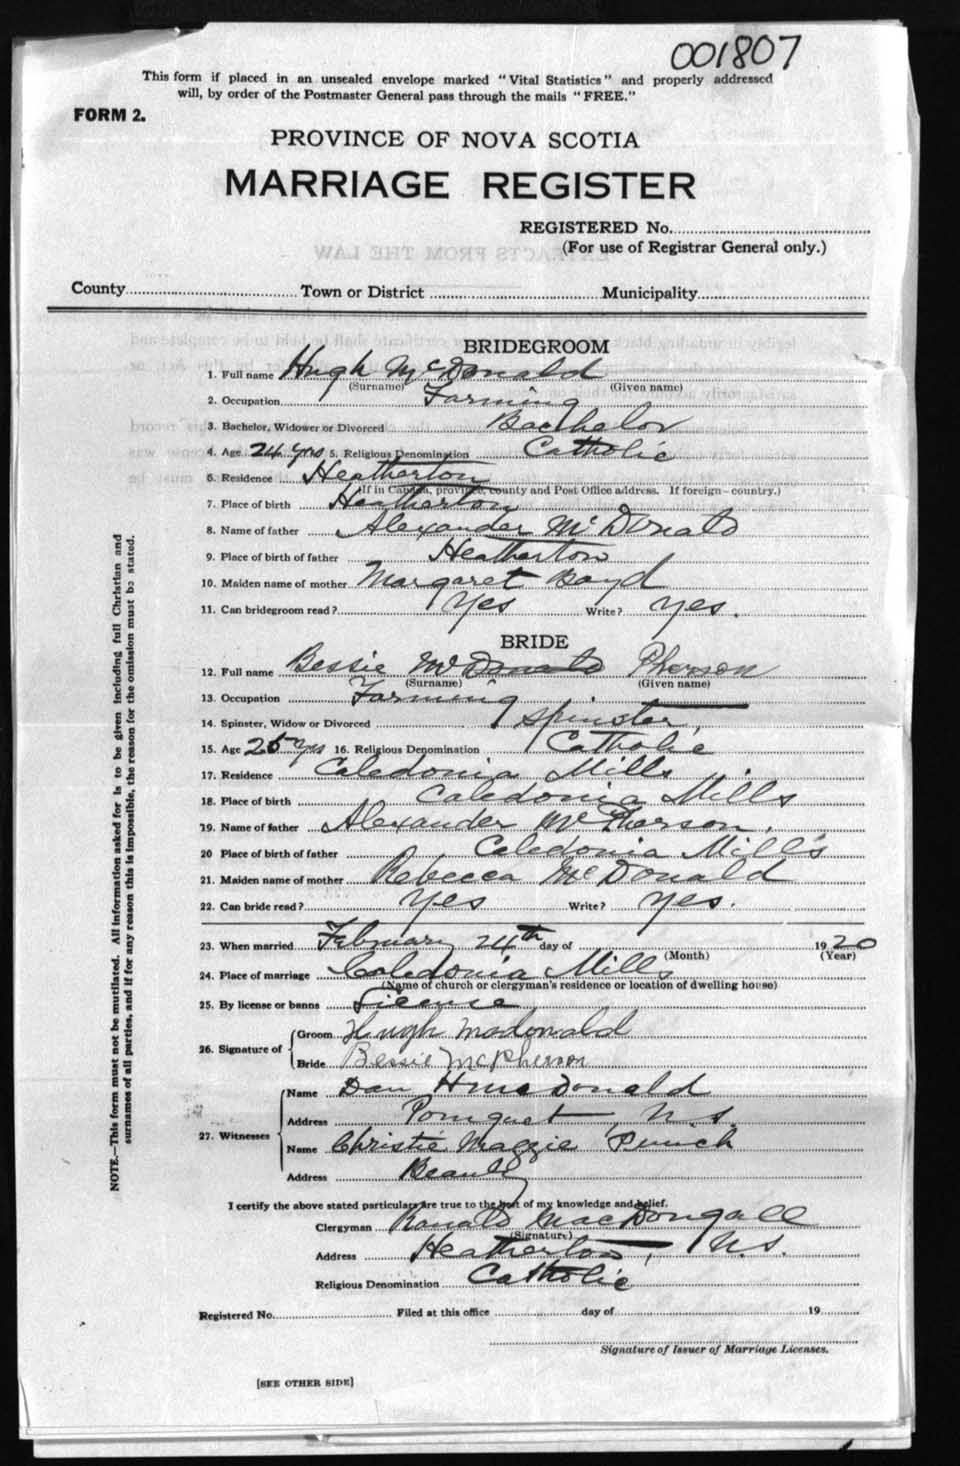 001807
This form if placed in an unsealed envelope marked "Vital Statistics" and properly addressed
will, by order of the Postmaster General pass through the mails "FREE."
FORM 2.
PROVINCE OF NOVA SCOTIA
MARRIAGE REGISTER
REGISTERED No.
(For use of Registrar General only.)
EXTRACTS FROM THE LAW
County Town or District Municipality
BRIDEGROOM
1. Full name Hugh McDonald
(Surname) (Given name)
2. Occupation Farming
3. Bachelor, Widower or Divorced Bachelor
4. Age 24 yrs 5. Religious Denomination Catholic
6. Residence Heatherton
(If in Canada, province, county and Post Office address. If foreign—country.)
7. Place of birth Heatherton
8. Name of father Alexander McDonald
9. Place of birth of father Heatherton
10. Maiden name of mother Margaret Boyd
11. Can bridegroom read? Yes Write? Yes.
BRIDE
12. Full name Bessie McDonald Pherson
(Surname) (Given name)
13. Occupation Farming
14. Spinster, Widow or Divorced Spinster,
15. Age 25 yrs 16. Religious Denomination Catholic
17. Residence Caledonia Mills
18. Place of birth Caledonia Mills
19. Name of father Alexander McPherson.
20 Place of birth of father Caledonia Mills
21. Maiden name of mother Rebecca McDonald
22. Can bride read? Yes Write? Yes.
23. When married February 24th day of 1920
(Month) (Year)
24. Place of marriage Caledonia Mills
(Name of church or clergyman's residence or location of dwelling house)
25. By license or banns License
26. Signature of Groom Hugh McDonald
Bride Bessie McPherson
27. Witnesses Name Dan H McDonald
Address Pomquet, N.S.
Name Christie Maggie Punch
Address Beauly
I certify the above stated particulars are true to the best of my knowledge and belief.
Clergyman Ronald MacDougall
(Signature)
Address Heatherton, N.S.
Religious Denomination Catholic
Registered No. Filed at this office day of 19
Signature of Issuer of Marriage Licenses.
[SEE OTHER SIDE]
NOTE.—This form must not be mutilated. All information asked for is to be given including full Christian and
surnames of all parties, and if for any reason this is impossible, the reason for the omission must be stated.